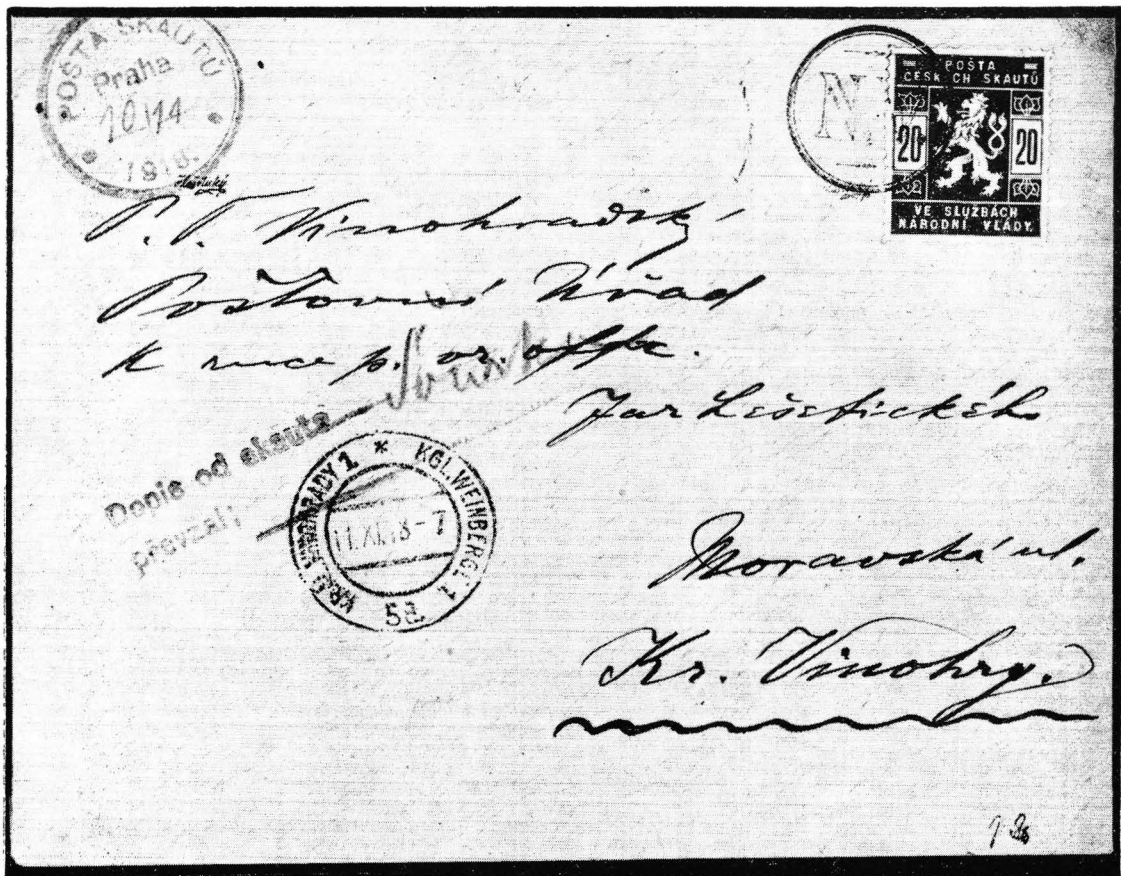 POŠTA SKAUTŮ
Praha
1918.
N.
POŠTA
ČESKÝCH SKAUTŮ
20 20
VE SLUŽBÁCH
NÁRODNÍ VLÁDY.
P. T. Vinohradský
Poštovní Úřad
k ruce p. of.
Jar Lešetického
Dopis od skauta
převzal:
KRÁL. VINOHRADY 1 * KGL. WEINBERGE 1
11.XI.18-7
5a
Moravská ul.
Kr. Vinohry.